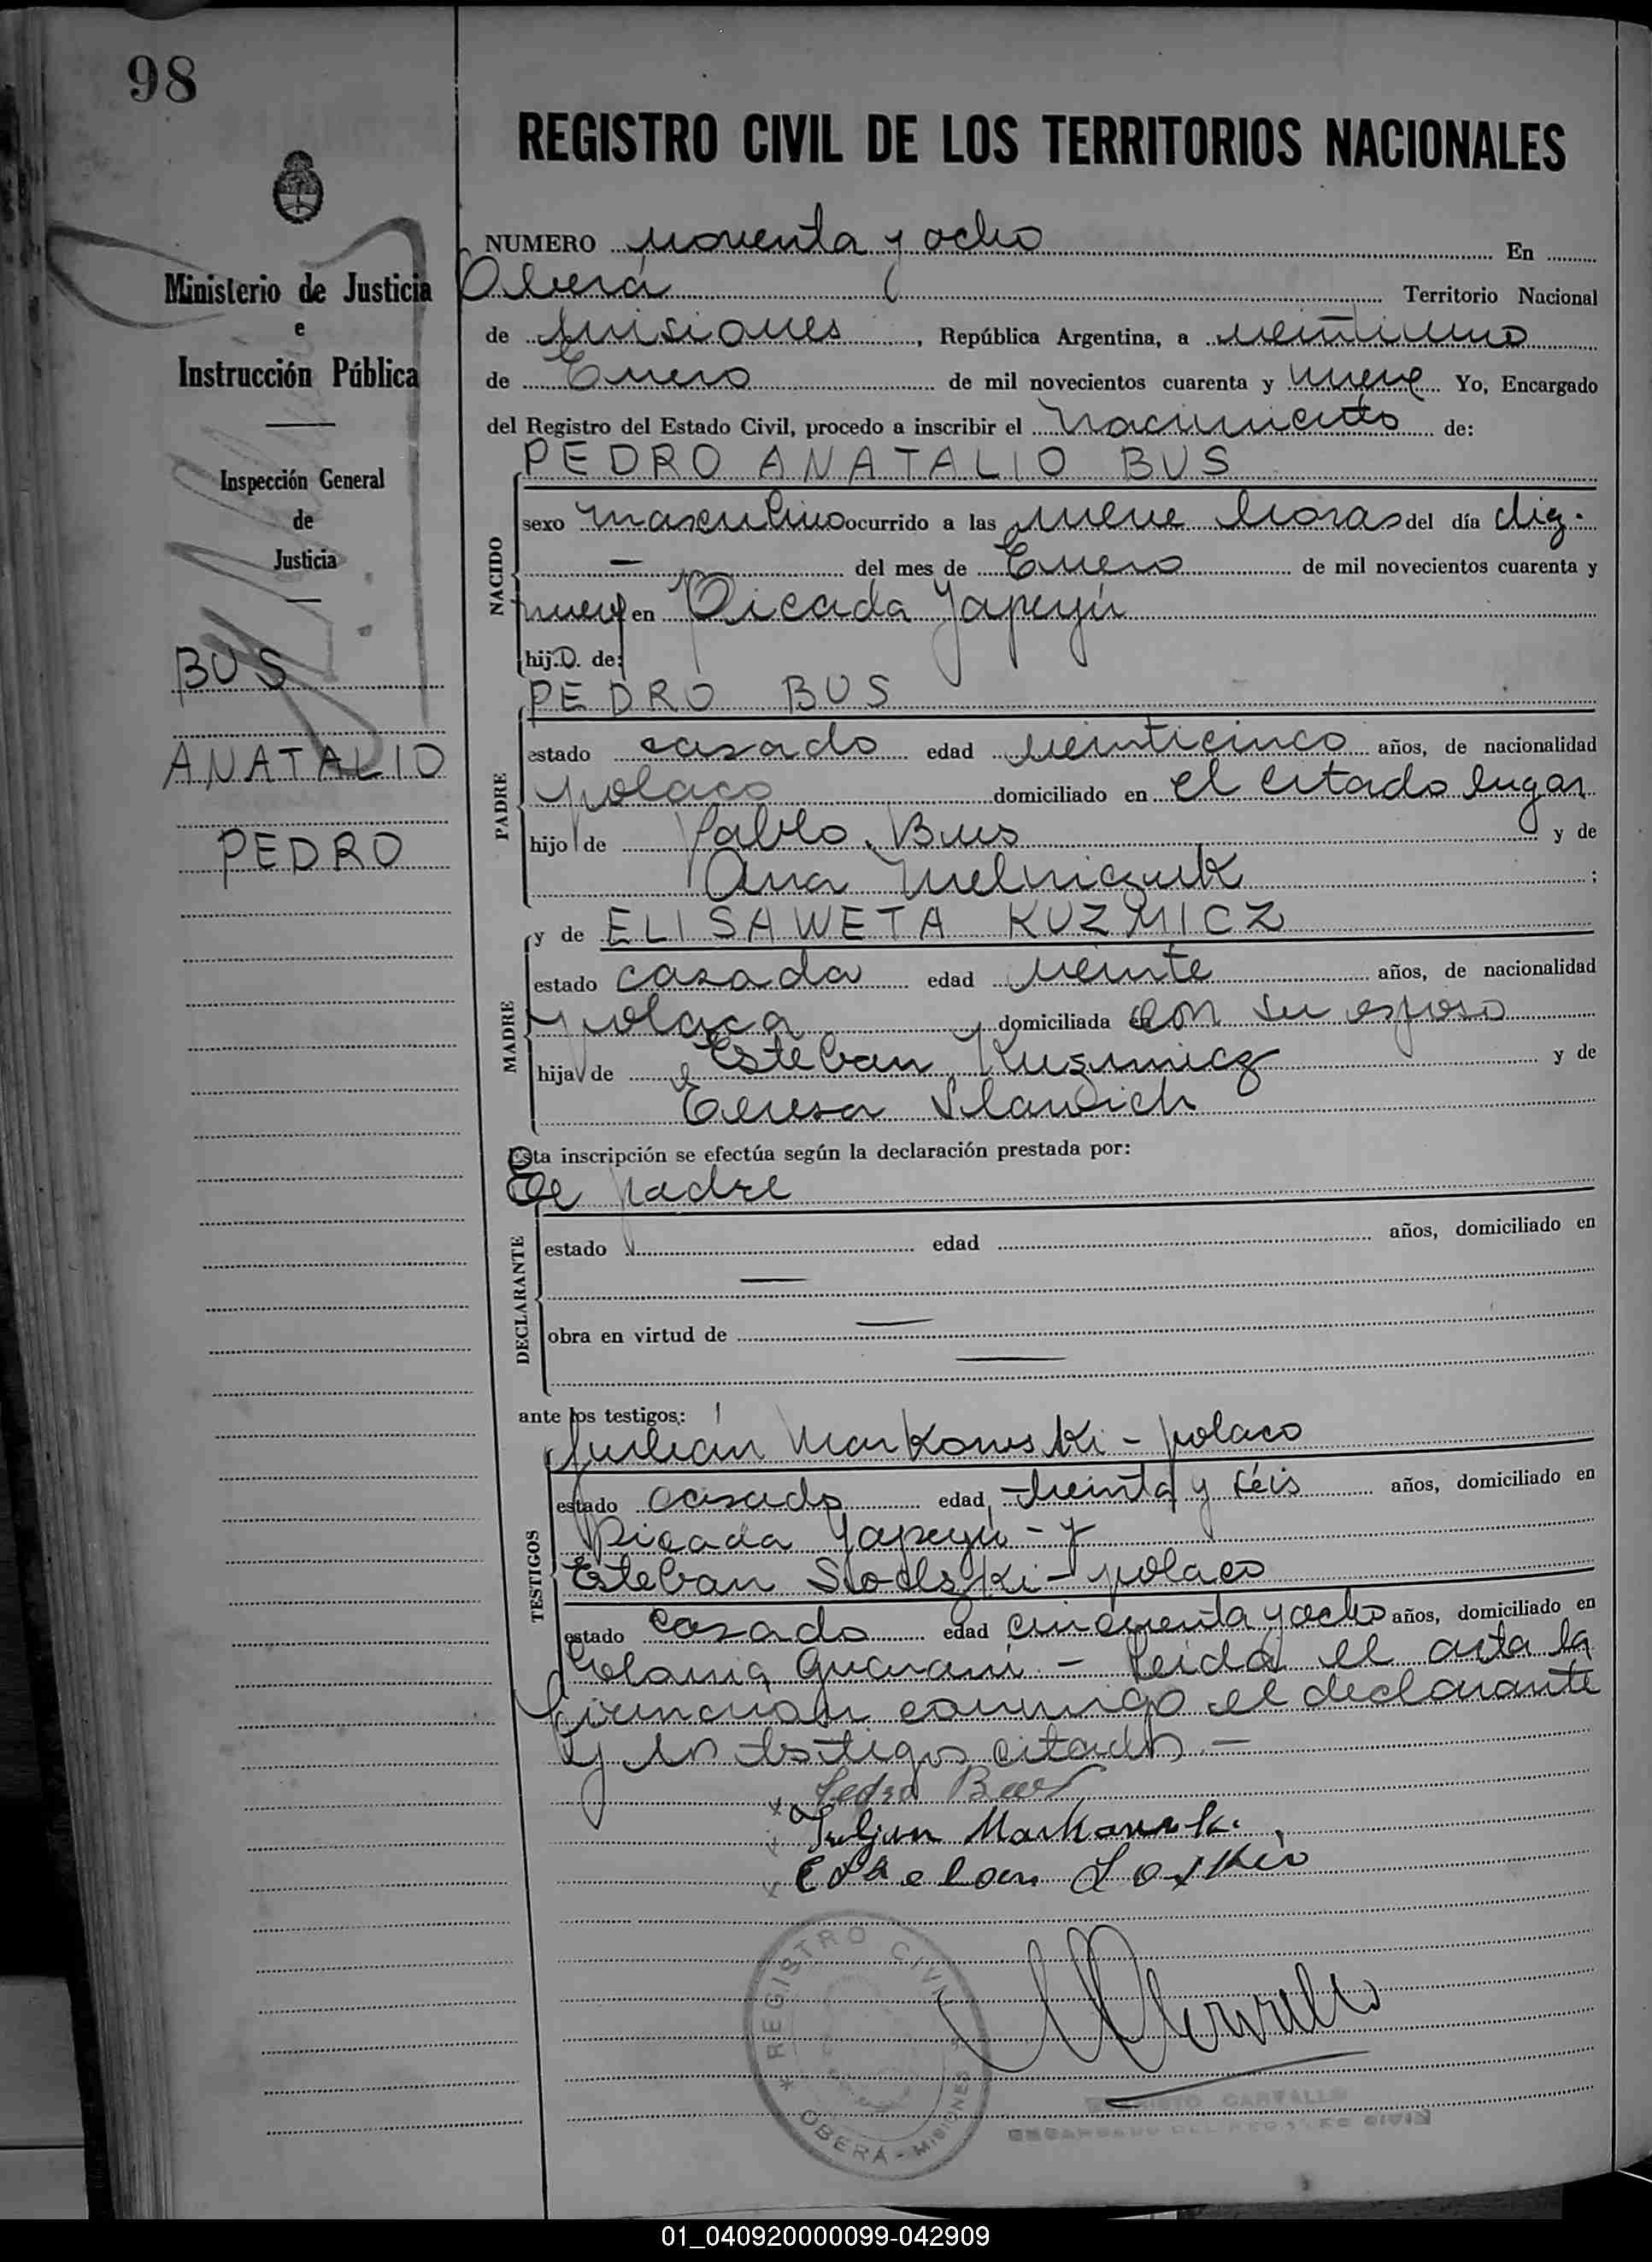 98
REGISTRO CIVIL DE LOS TERRITORIOS NACIONALES
Ministerio de Justicia
e
Instrucción Pública
Inspección General
de
Justicia
BUS
ANATALIO
PEDRO
NUMERO noventa y ocho En
Oberá Territorio Nacional
de Misiones, República Argentina, a veintiuno
de Enero de mil novecientos cuarenta y nueve Yo, Encargado
del Registro del Estado Civil, procedo a inscribir el nacimiento de:
PEDRO ANATALIO BUS
NACIDO
sexo masculino ocurrido a las nueve horas del día diez.
— del mes de Enero de mil novecientos cuarenta y
nueve en Picada Yapeyú
hijo. de:
PEDRO BUS
PADRE
estado casado edad veinticinco años, de nacionalidad
polaco domiciliado en el citado lugar
hijo de Pablo Bus y de
Ana Melniczuk ;
y de ELISAWETA KUZMICZ
MADRE
estado casada edad veinte años, de nacionalidad
polaca domiciliada con su esposo
hija de Esteban Kuzmicz y de
Teresa
Esta inscripción se efectúa según la declaración prestada por:
El padre
DECLARANTE
estado edad años, domiciliado en
—
obra en virtud de —
—
ante los testigos:
Julian Markowski - polaco
TESTIGOS
estado casado edad treinta y séis años, domiciliado en
Picada Yapeyú - y
Esteban - polaco
estado casado edad cincuenta y ocho años, domiciliado en
Colonia Guarani - Leida el acta la
firman conmigo el declarante
y los testigos citados. —
x Pedro Bus
x Juljan Markowski
x Esteban
REGISTRO CIVIL
* OBERÁ - MISIONES
CARVALLO
ENCARGADO DEL REGT. EC CIVIL
01_040920000099-042909